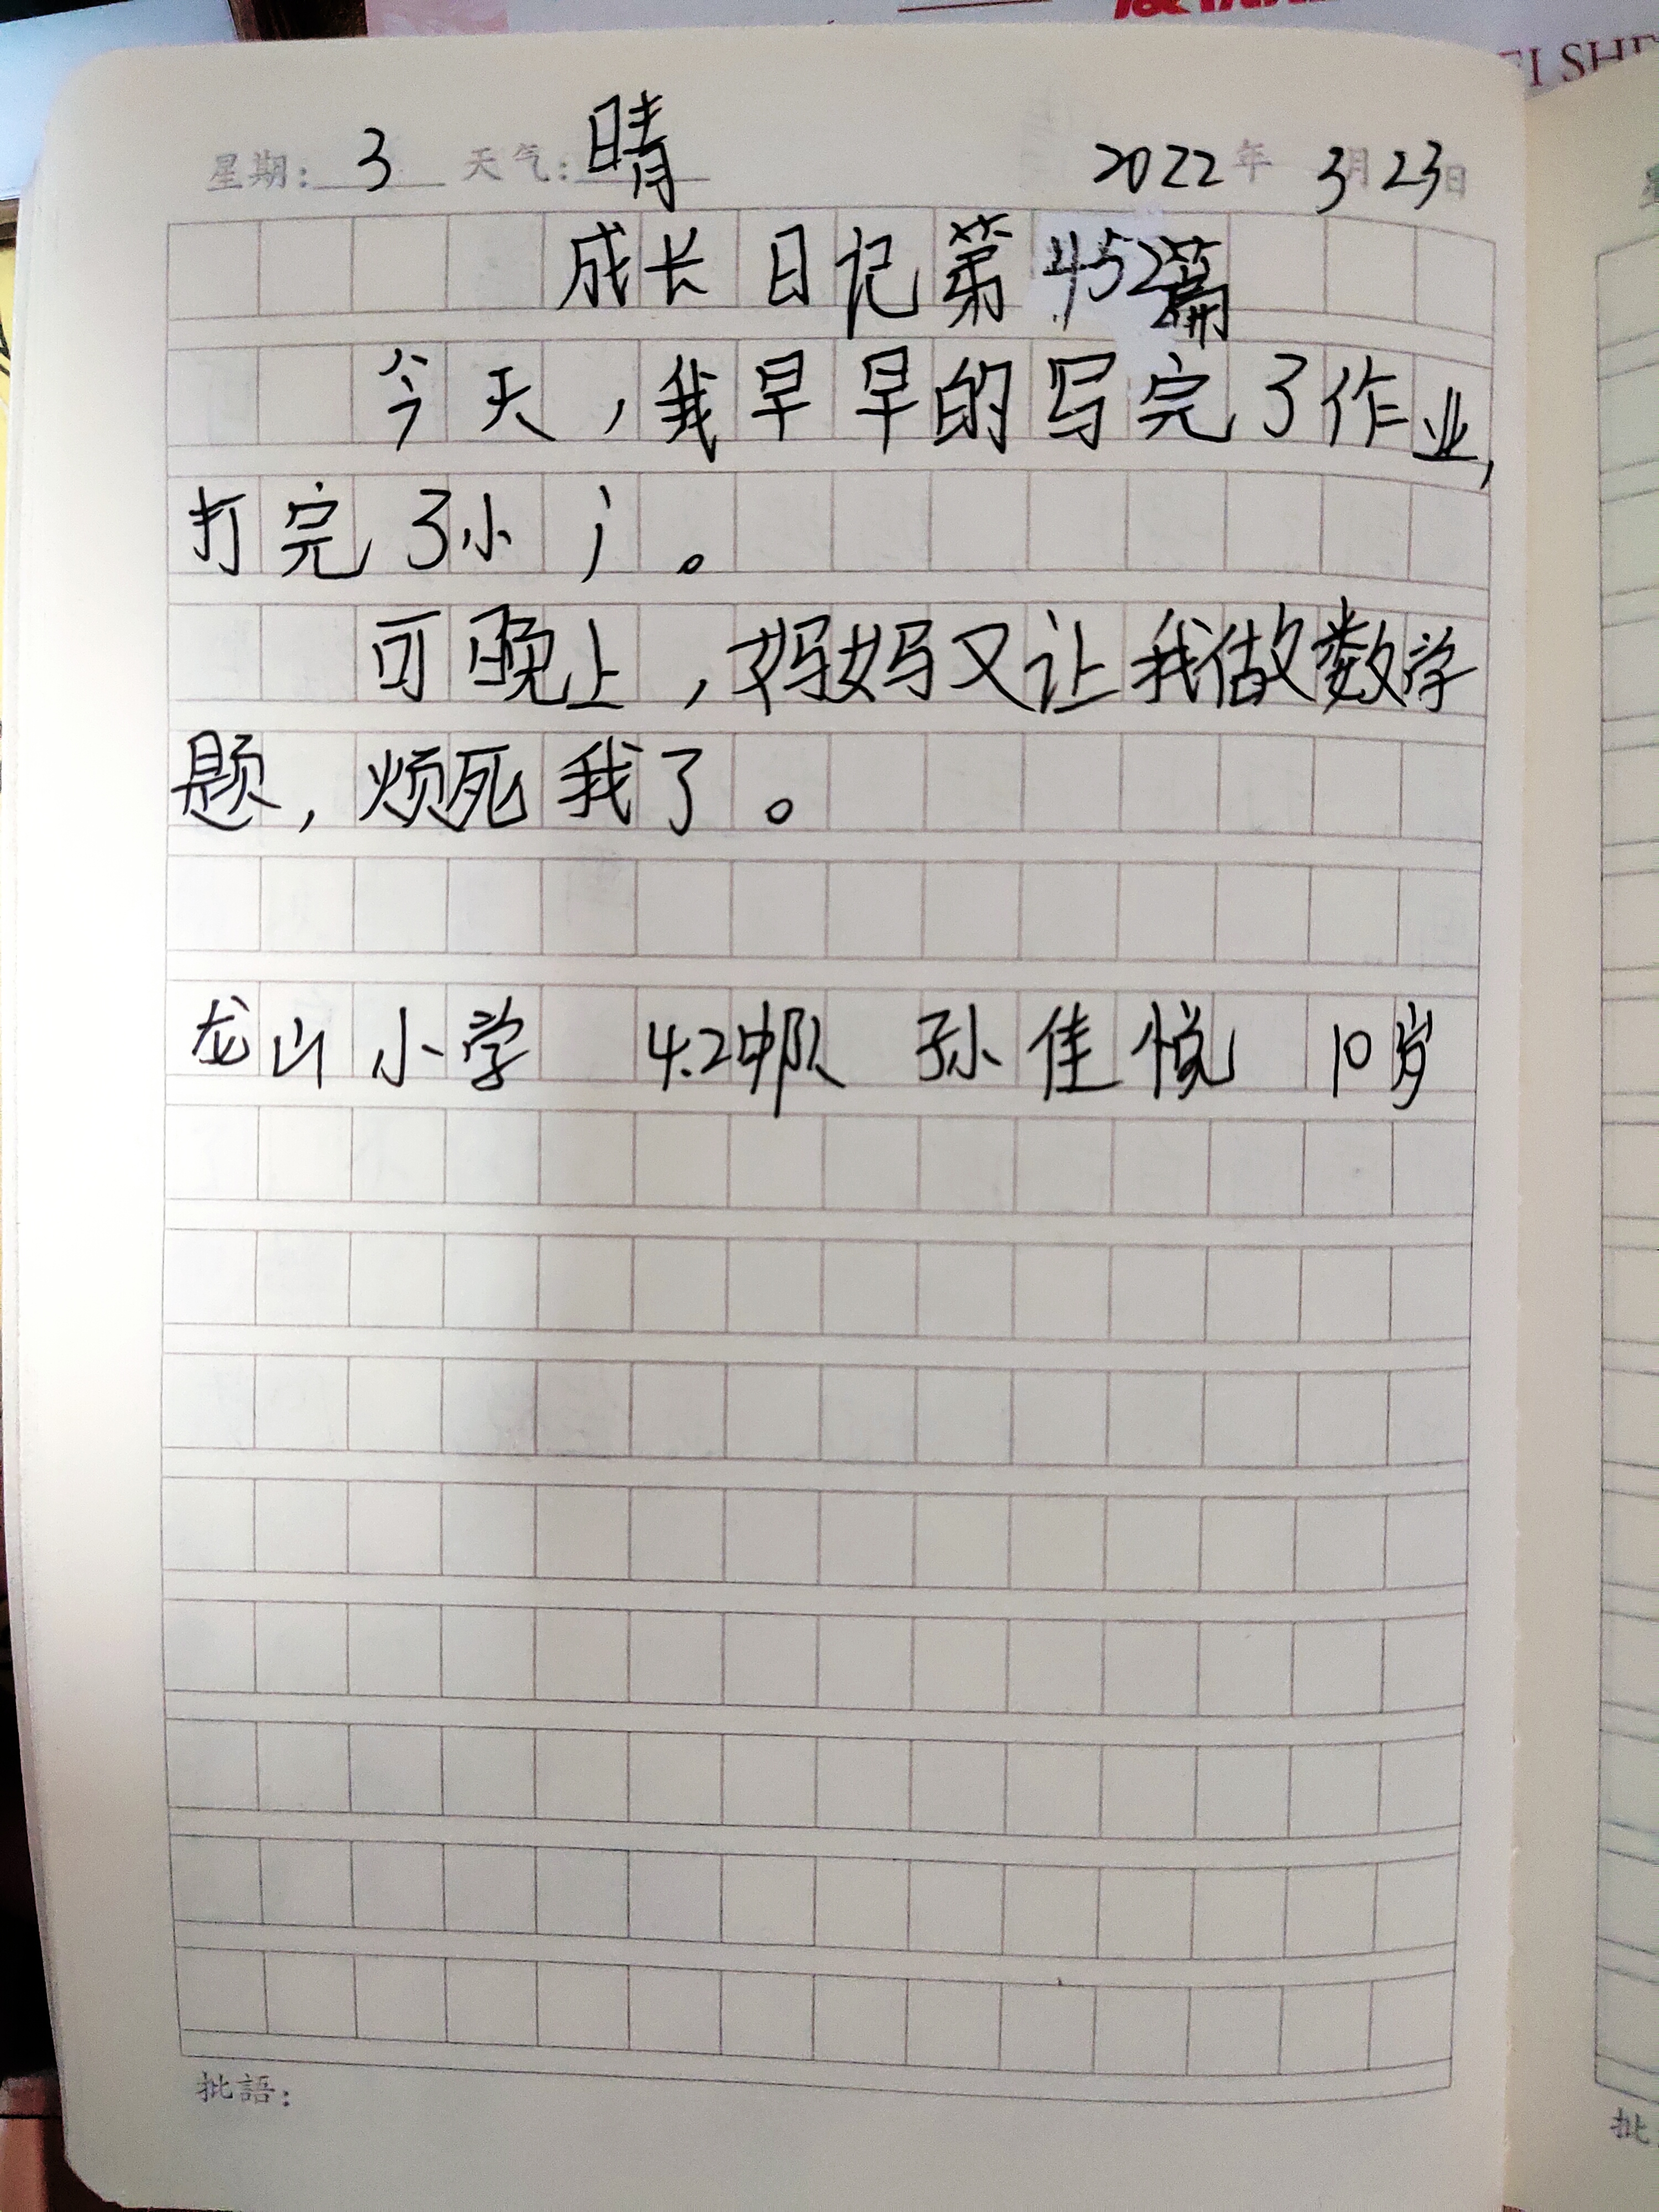 EI SHE
星期：3 天气：晴 2022年3月23日
成长日记第452篇
今天，我早早的写完了作业，
打完了小
可晚上，妈妈又让我做数学
题，烦死我了。
龙山小学 4.2中队 孙佳悦 10岁
批語：
批